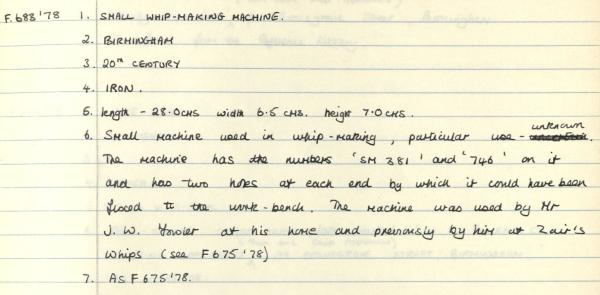 F.688'78 1. SMALL WHIP-MAKING MACHINE.
2. BIRMINGHAM
3. 20TH CENTURY
4. IRON.
5. length - 28.0cms width 6.5 cms. height 7.0cms.
6. Small machine used in whip-making, particular use - unknown
The machine has the numbers 'SM 381' and '746' on it
and has two holes at each end by which it could have been
fixed to the work-bench. The machine was used by Mr
J. W. Fowler at his home and previously by him at Zair's
Whips (see F675'78)
7. AS F675'78.